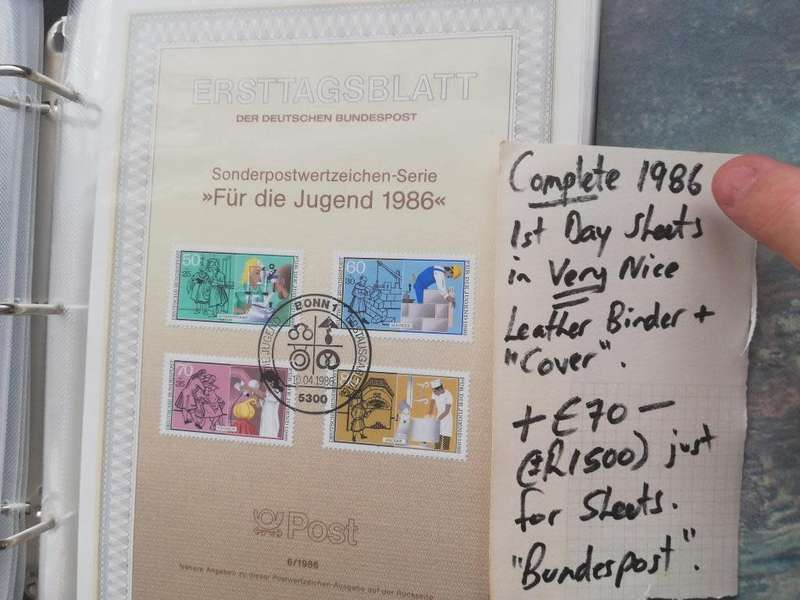 ERSTTAGSBLATT
DER DEUTSCHEN BUNDESPOST
Sonderpostwertzeichen-Serie
»Für die Jugend 1986«
50
60
BONN 1
10.04.1986
5300
70
Post
6/1986
Nähere Angaben zu dieser Postwertzeichen-Ausgabe auf der Rückseite
Complete 1986
1st Day Sheets
in Very Nice
Leather Binder +
"Cover".
+ €70 —
(±R1500) just
for Sheets.
"Bundespost".